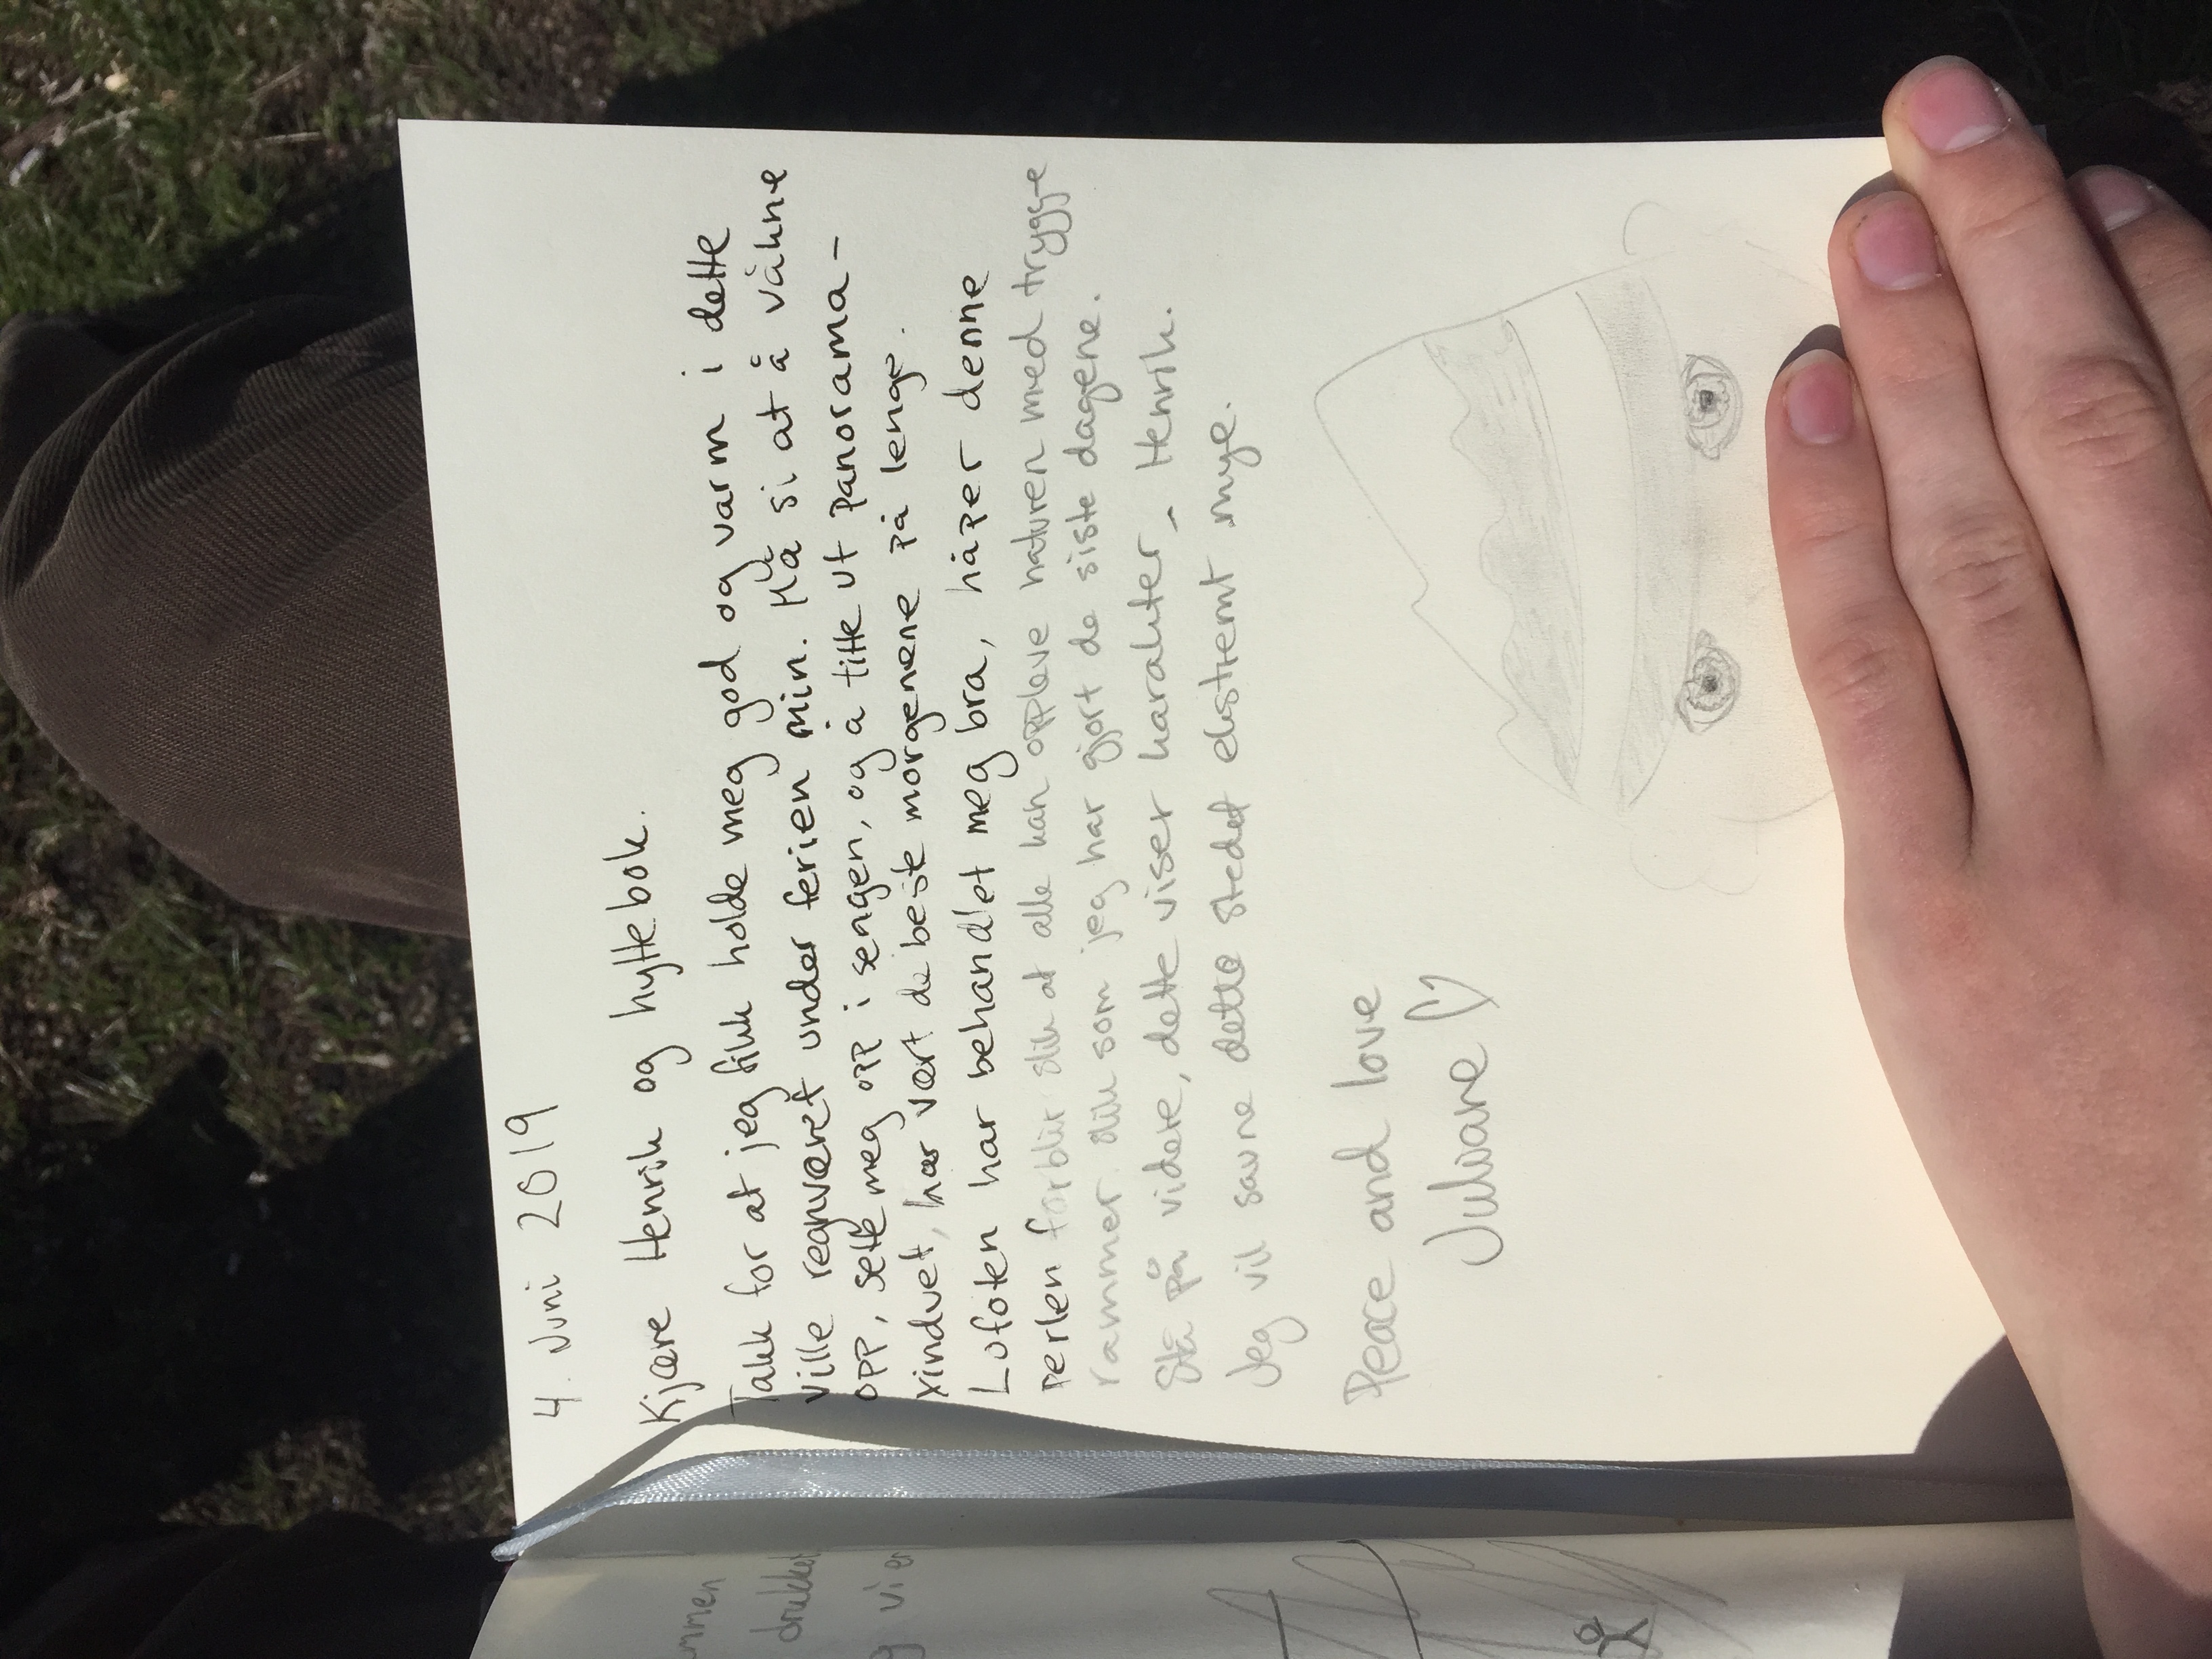 4. Juni 2019
Kjære Henrik og hyttebok.
Takk for at jeg fikk holde meg god og varm i dette
ville regnværet under ferien min. Må si at å våkne
opp, sette meg opp i sengen, og å titte ut panorama-
vinduet, har vært de beste morgenene på lenge.
Lofoten har behandlet meg bra, håper denne
perlen forblir slik at alle kan oppleve naturen med trygge
rammer slik som jeg har gjort de siste dagene.
Stå på videre, dette viser karakter, Henrik.
Jeg vil savne dette stedet ekstremt mye.
Peace and love
Juliane ♡
mmen
drukket
g vi er